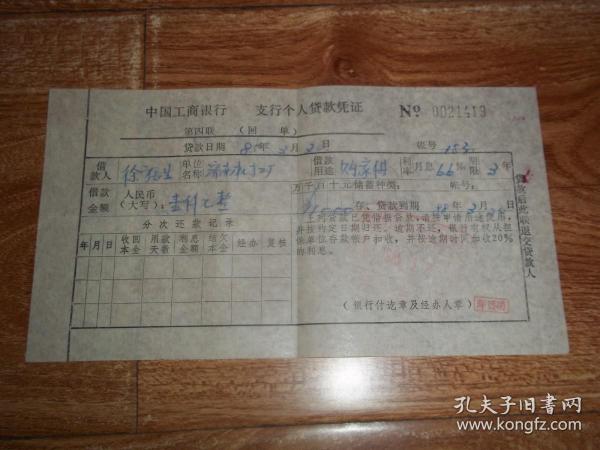 中国工商银行　支行个人贷款凭证　№ 0021419
第四联　（回　单）
贷款日期　85年　月　日　帐号　153
借款人　徐　生　单位名称　借款用途　购家俱　利率　月息6.6‰　期限　3年
借款金额　人民币（大写）：壹仟元整　万千百十元　储蓄种类：　帐号：
存、贷款到期　88年3月2日
分次还款记录
上列贷款已凭借据贷放，请按申请用途使用，
年　月　日　收回本金　用款天数　利息金额　结欠本金　经办　复核
并按约定日期归还。逾期不还，银行有权从担
保单位存款帐户扣收，并按逾期时间加收20%
的利息。
（银行付讫章及经办人章）
贷款后此联退交贷款人
孔夫子旧书网
www.kongfz.com